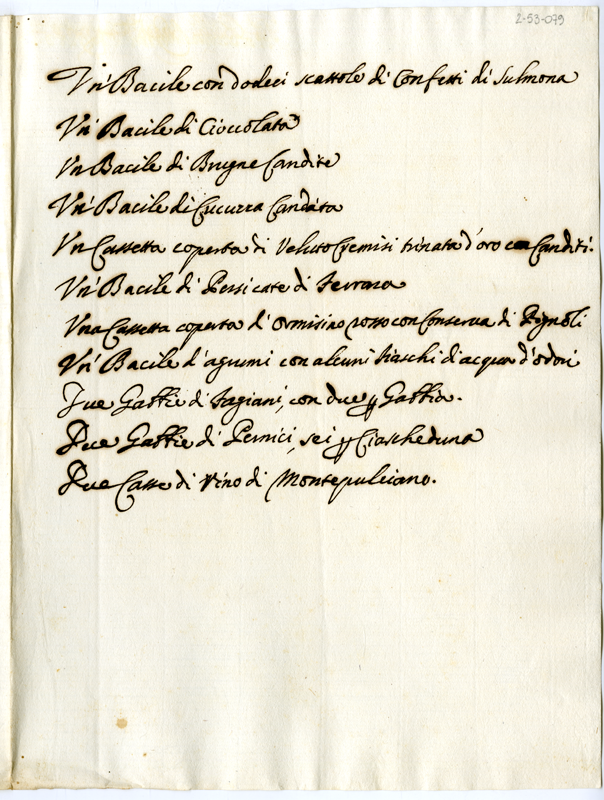 2-53-079
Vn' Bacile con dodeci scattole di Confetti di Sulmona
Vn' Bacile di Cioccolata
Vn Bacile di Brugne Candite
Vn' Bacile di Cucuzza Candita
Vn Cassetta coperta di Veluto Cremisi trinata d'oro con Canditi.
Vn' Bacile di Persicate di Ferrara
Vna Cassetta coperta d'Ormisino rosso con Conserva di Pignoli
Vn' Bacile d'agrumi con alcuni fiaschi di acqua d'odori
Due Gabbie di Fagiani, con due p Gabbia.
Due Gabbie di Pernici, sei p Ciascheduna
Due Casse di Vino di Montepulciano.